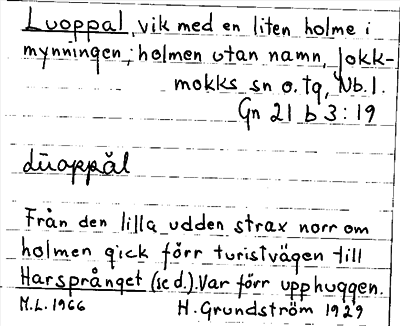 Luoppal, vik med en liten holme i
mynningen; holmen utan namn, Jokk-
mokks sn o. tg, Nb. l.
Gn 21 b 3:19
Från den lilla udden strax norr om
holmen gick förr turistvägen till
Harsprånget (se d.). Var förr upphuggen.
M.L. 1966 H. Grundström 1929